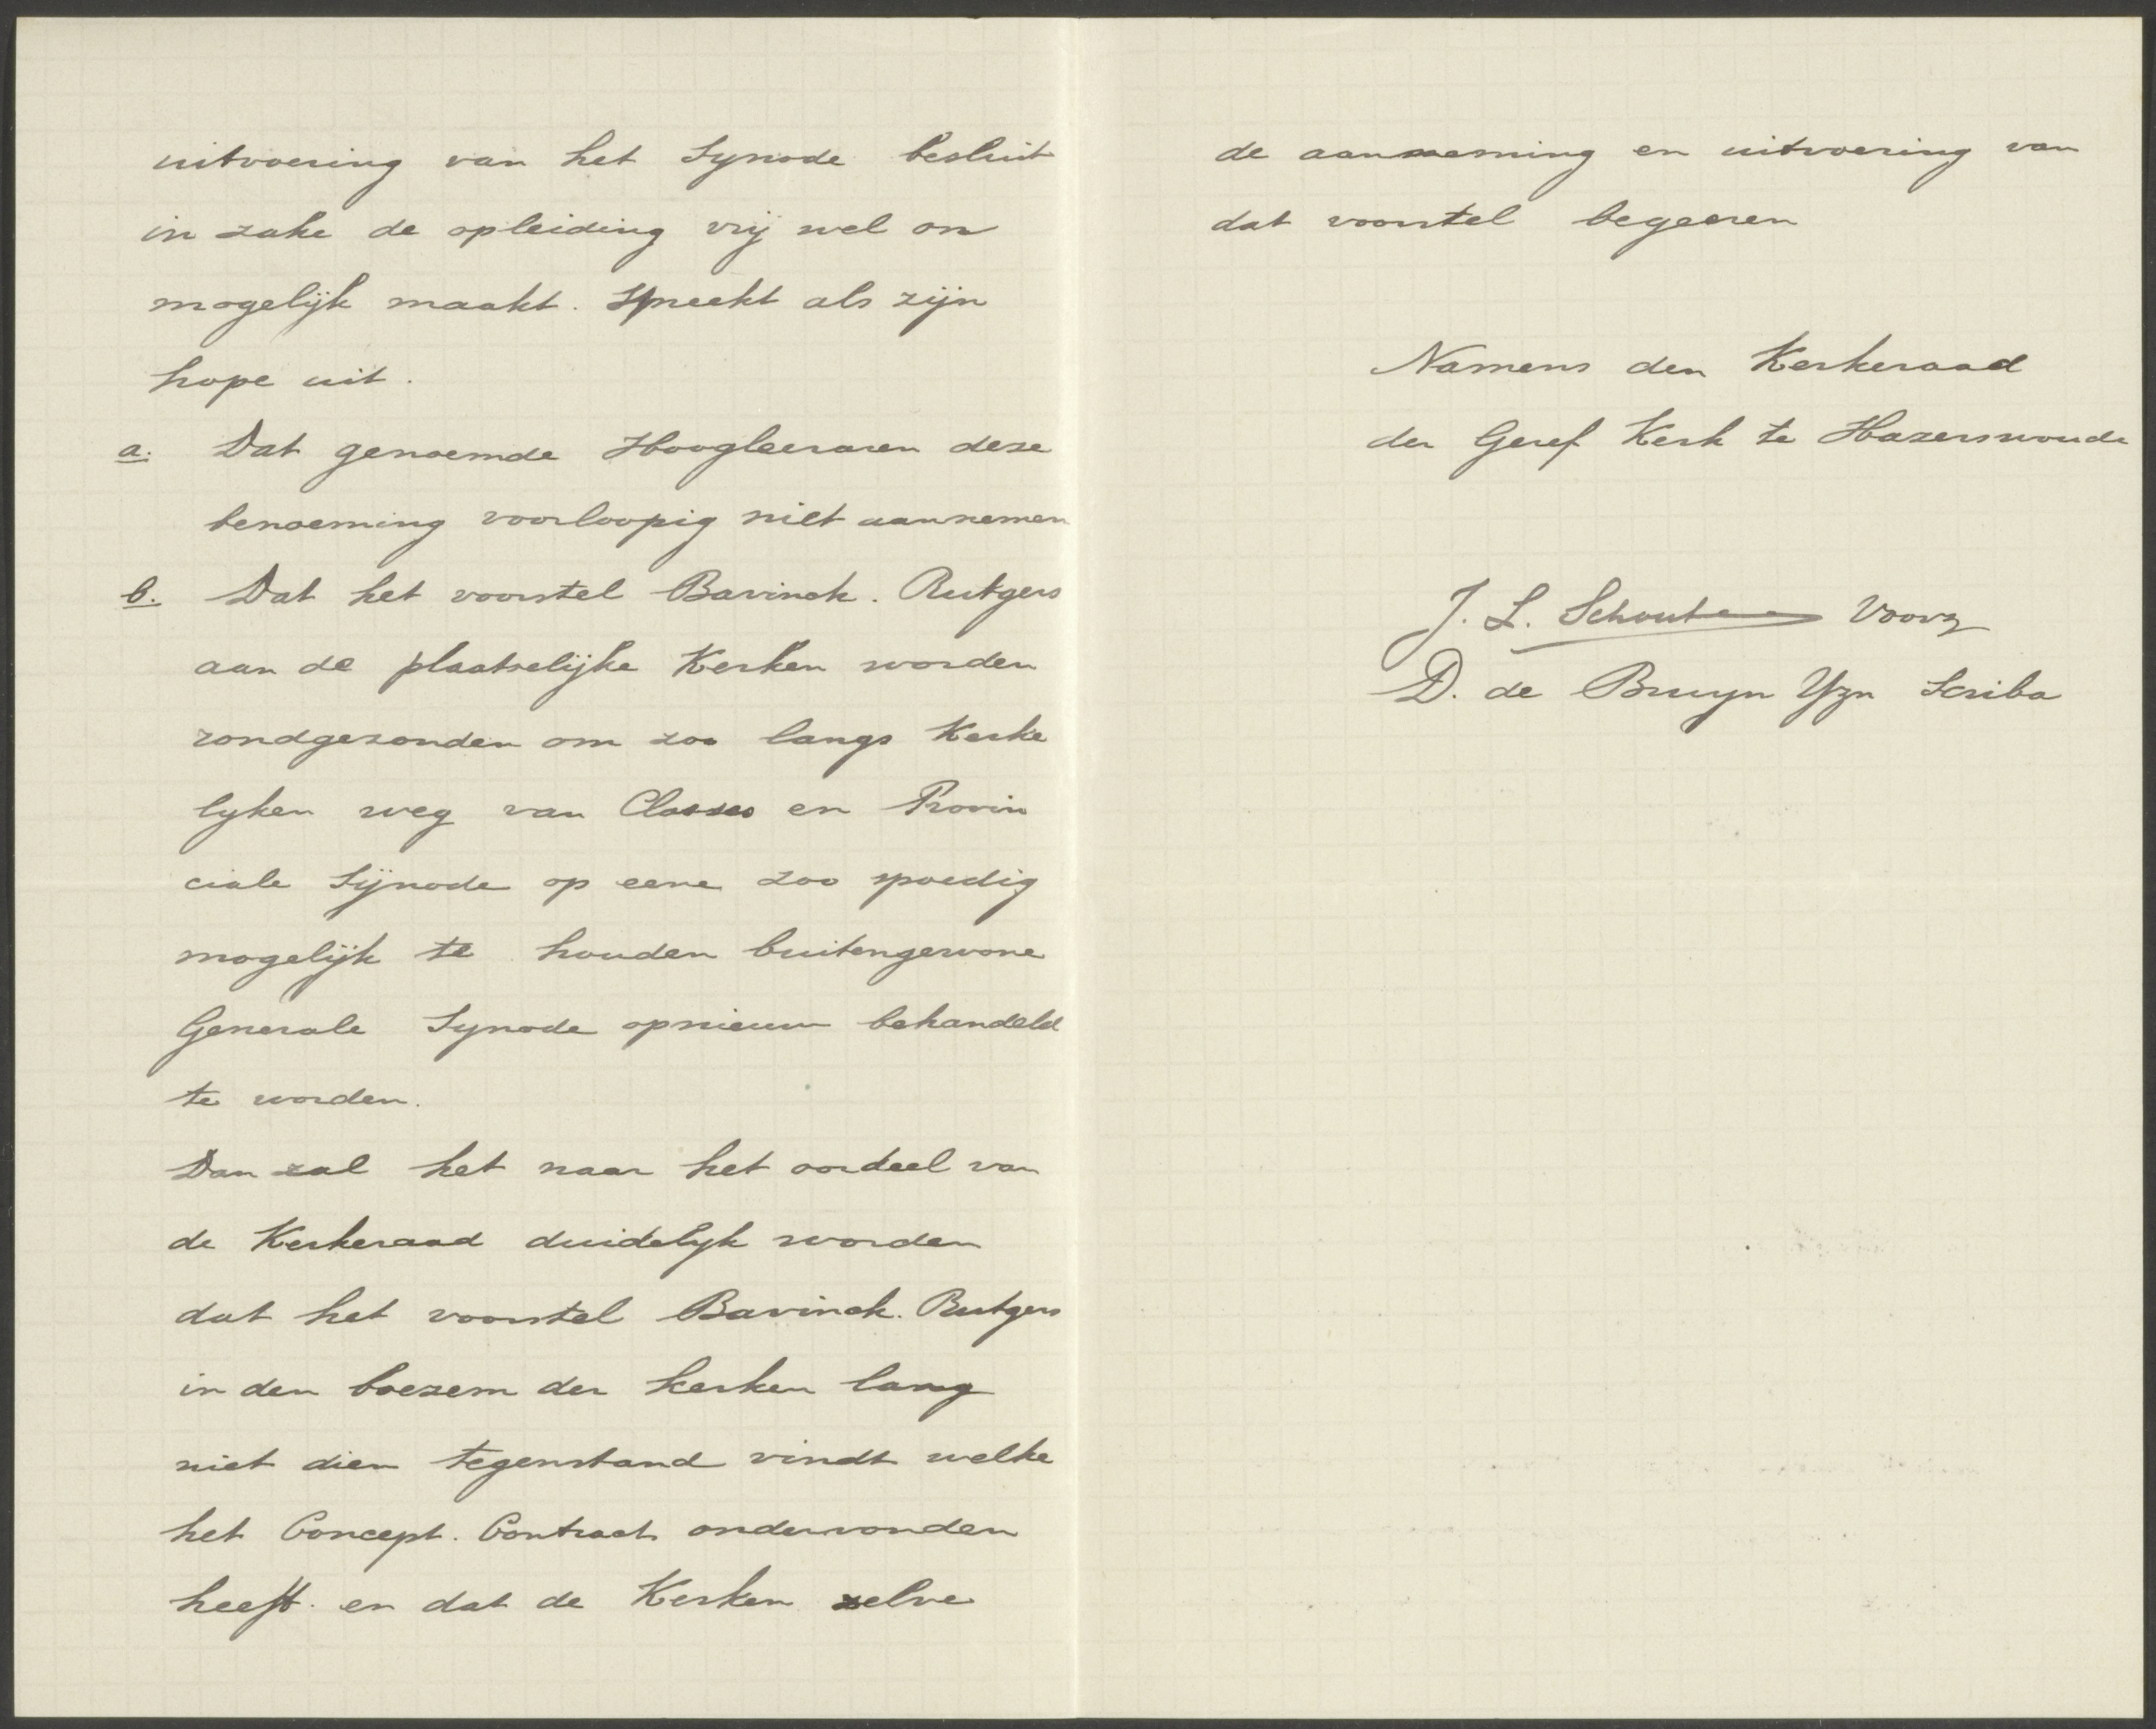 uitvoering van het Synode besluit
in zake de opleiding vrij wel on
mogelijk maakt. Spreekt als zijn
hope uit.
a. Dat genoemde Hoogleeraren deze
benoeming voorloopig niet aannemen
b. Dat het voorstel Bavinck. Rutgers
aan de plaatselijke Kerken worden
rondgezonden om zoo langs Kerke
lyken weg van Classes en Provin
ciale Sijnode op eene zoo spoedig
mogelijk te houden buitengewone
Generale Synode opnieuw behandeld
te worden.
Dan zal het naar het oordeel van
de Kerkeraad duidelyk worden
dat het voorstel Bavinck. Rutgers
in den boezem der kerken lang
niet dien tegenstand vindt welke
het Concept. Contract ondervonden
heeft. en dat de Kerken zelve
de aanneming en uitvoering van
dat voorstel begeeren
Namens den Kerkeraad
der Geref Kerk te Hazerswoude
J. L. Schouten Voorz
D. de Bruyn Yzn Scriba